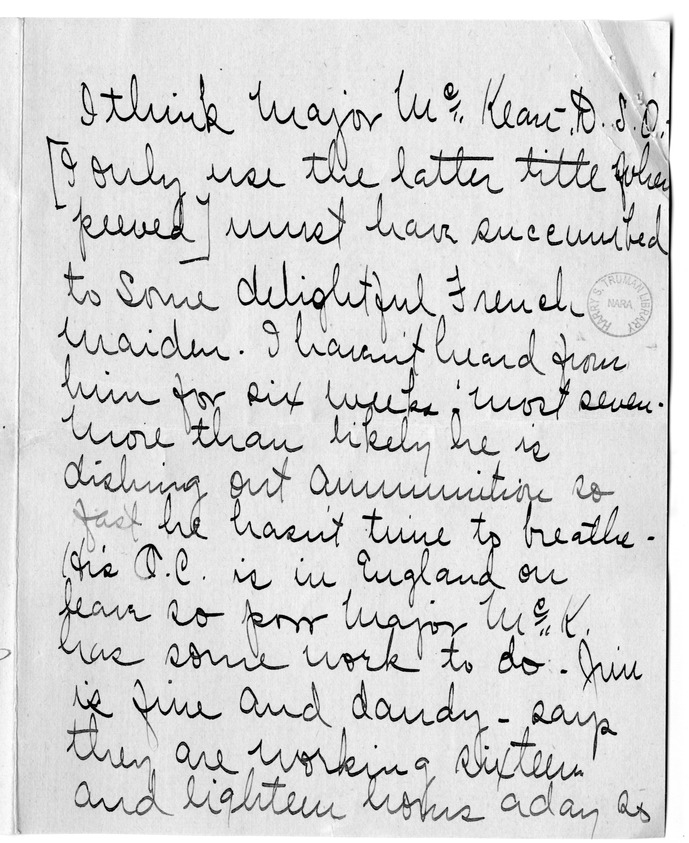 I think Major McKean - D.S.O.
[I only use the latter title when
peeved] must have succumbed
to some delightful French
maiden. I haven't heard from
him for six weeks, 'most seven.
More than likely he is
dishing out ammunition so
fast he hasn't time to breathe -
His O.C. is in England on
leave so poor Major McK.
has some work to do - Jim
is fine and dandy - says
they are working sixteen
and eighteen hours a day as
HARRY S. TRUMAN LIBRARY
NARA